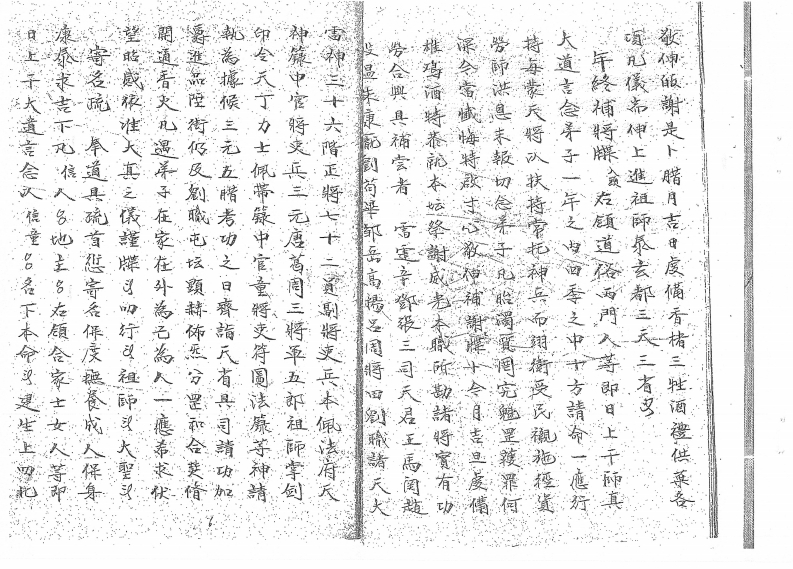 敬伸皈謝是卜腊月吉日虔備香楮三牲酒禮供菓各
項凡儀耑伸上進祖師恭玄都三天三省
年終補將牒 右領道俗两門人等即日上干師真
大道言念弟子一年之内四季之中十方請命一應行
持每蒙天將以扶持常托神兵而翊衛受民襯施經資
勞師洪息未報切念弟子凡胎濁質罔究魁罡獲罪何
深今當懺悔特啟寸心敬伸補謝牒十今月吉旦虔備
雄鳮酒特恭就本坛祭謝威光本職所勘諸將實有功
勞合興具補雲者 雷霆辛鄧張三司天君王馬関趙
温朱康龍劉苟畢鄒岳高楊呂周將田劉職諸天大
雷神三十六階正將七十二員副將吏兵本佩法府天
神籙中官將吏兵三元唐葛周三將軍五郎祖師掌劍
印令天丁力士佩帶籙中官童將吏符圖法籙等神請
執為據候三元五腊考功之日齊詣天省具司請功加
爵進品陞術仍反劉職屯坛顯赫佈炁分罡和合獎脩
開通香火凡遇弟子在家在外為己為人一應希求伏
望昭感依准大真之儀謹牒 叩行 祖師 大聖
寄名疏 奉道具疏首愆寄名保度撫養成人保身
康泰求吉下凡信人 地主 右領合家士女人等即
日上干大道言念以信童 名下本命 建生上叨北